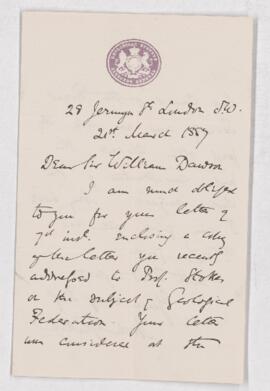 28 Jermyn St London S.W.
21st March 1887
Dear Sir William Dawson
I am much obliged
to you for your letter of
7th inst. enclosing a copy
of the letter you recently
addressed to Prof. Stokes
on the subject of Geological
Federation Your letter
was considered at the